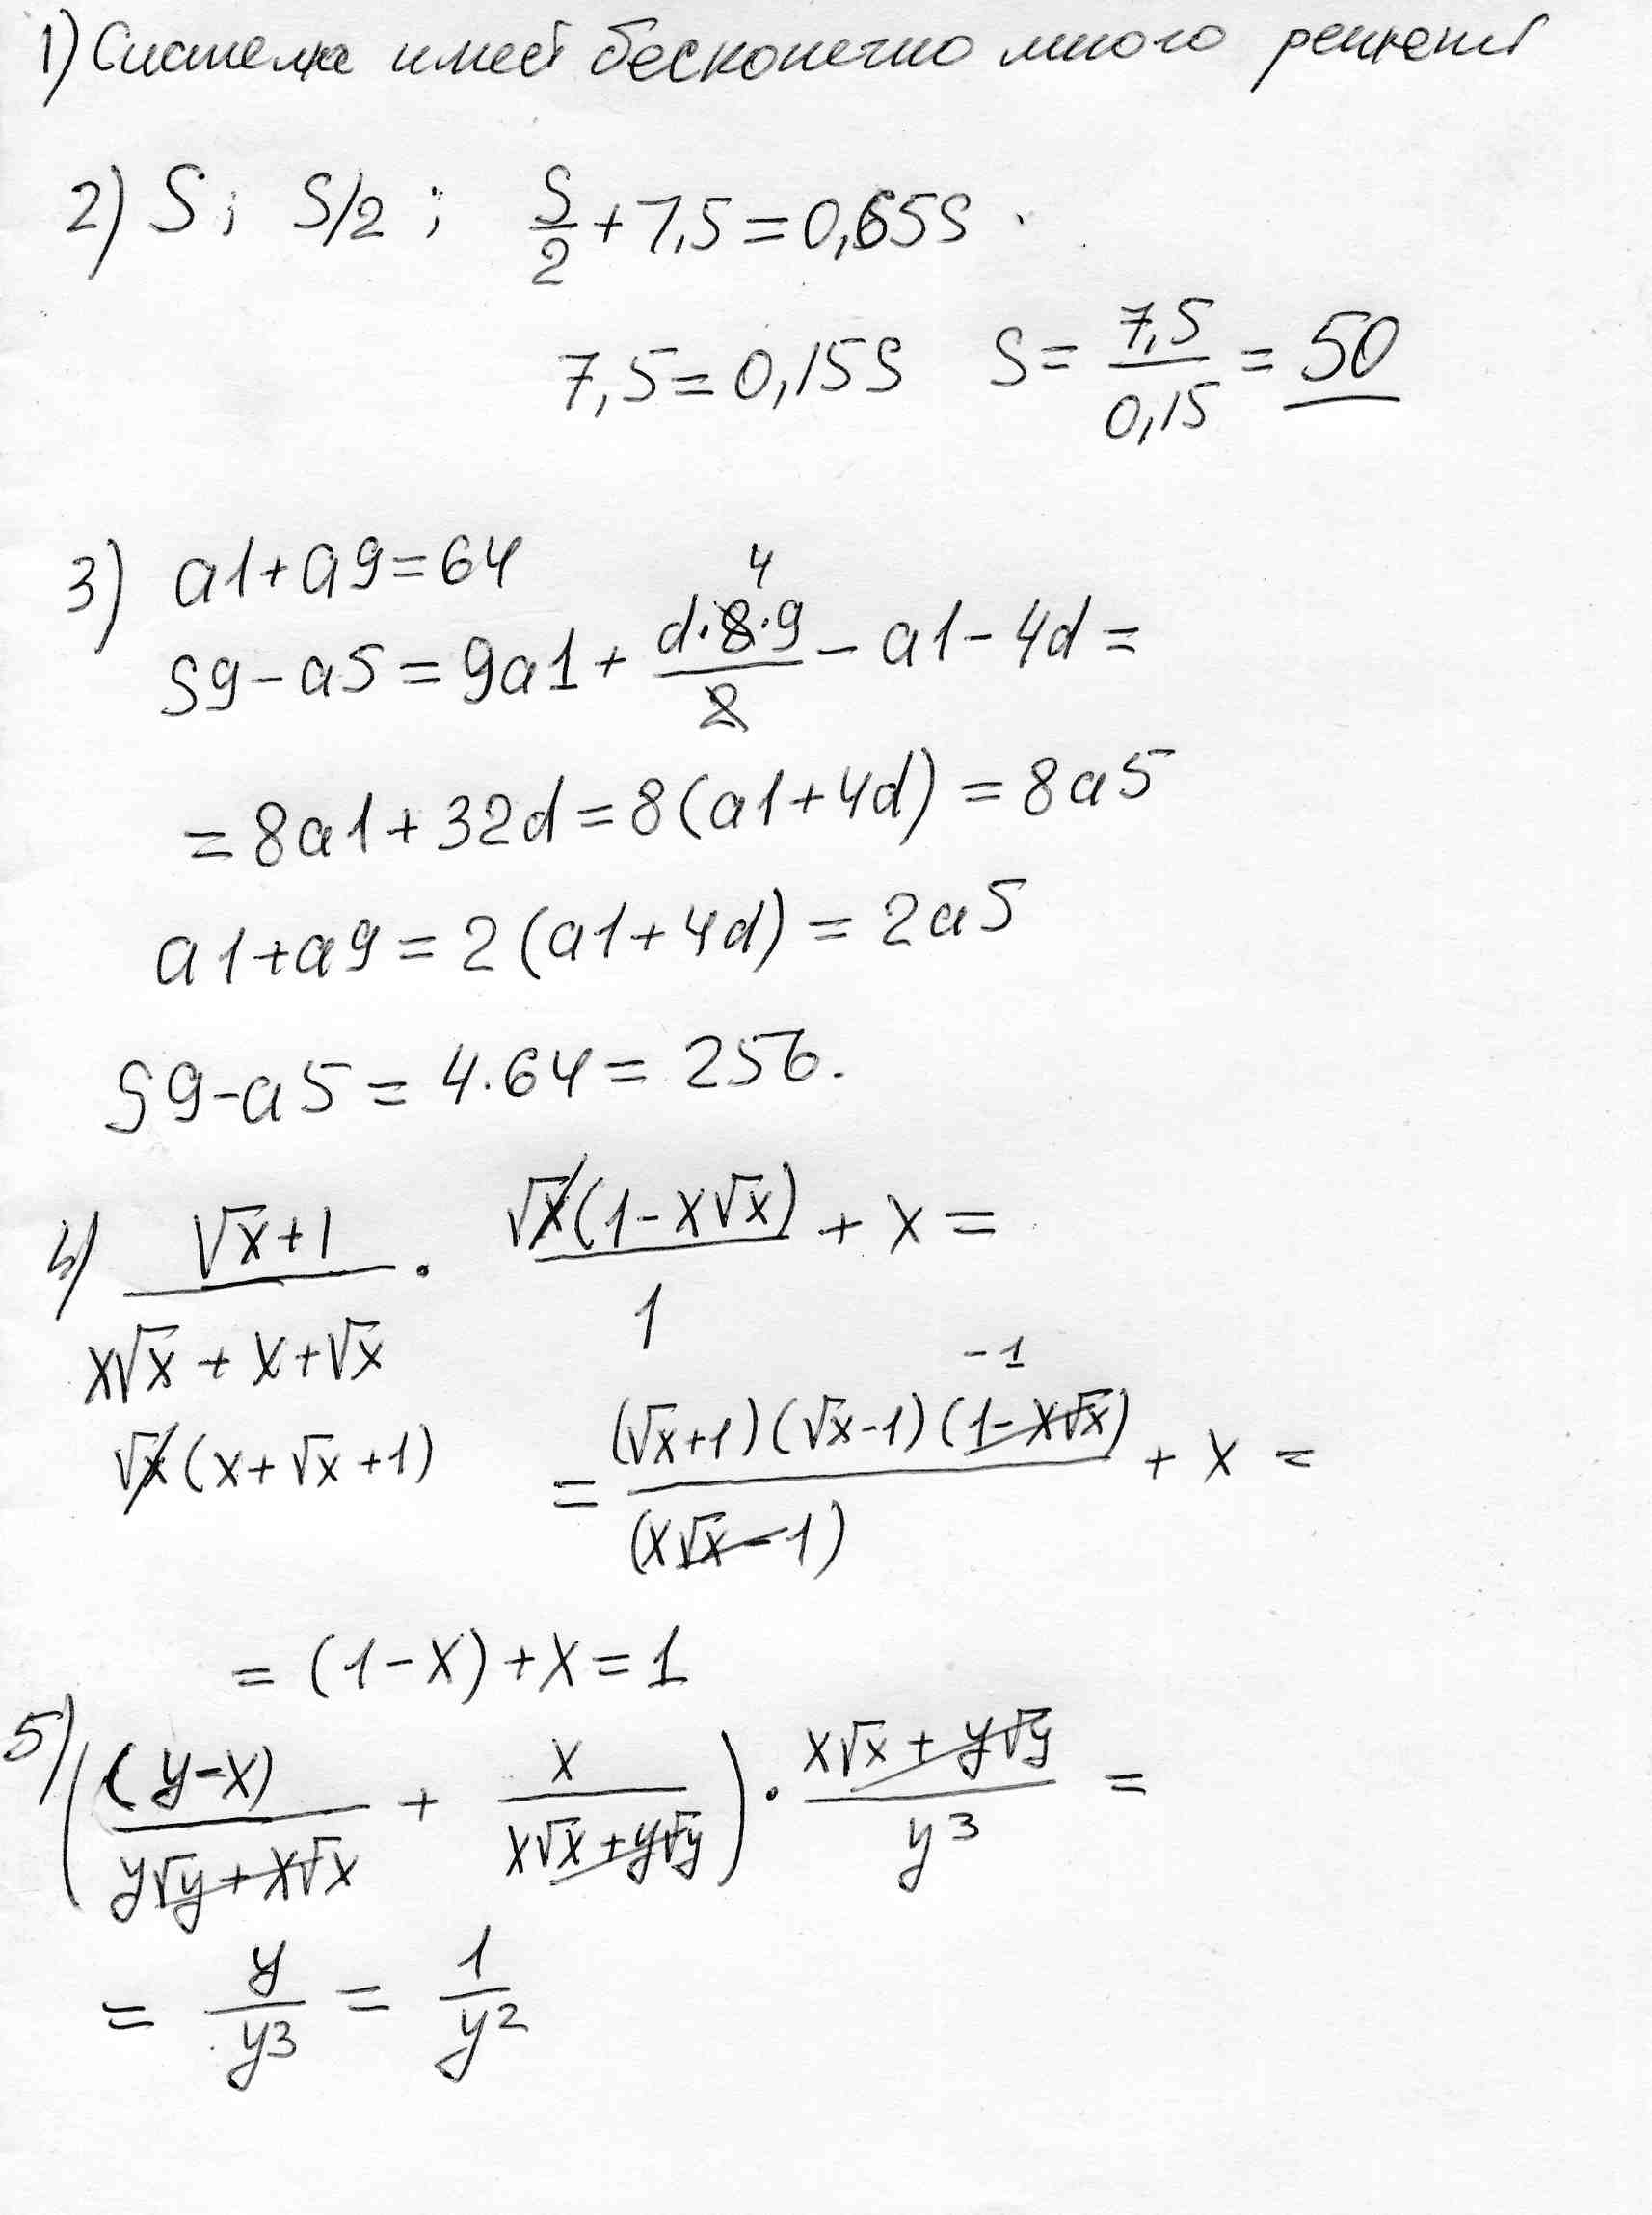 1) Система имеет бесконечно много решений
2) S; S/2; S/2 + 7,5 = 0,65S
7,5 = 0,15S S = 7,5/0,15 = 50
3) a1 + a9 = 64
S9 - a5 = 9a1 + d·8·9/2 - a1 - 4d =
4
= 8a1 + 32d = 8(a1 + 4d) = 8a5
a1 + a9 = 2(a1 + 4d) = 2a5
S9 - a5 = 4·64 = 256.
4) (√x + 1)/(x√x + x + √x) · √x(1 - x√x)/1 + x =
√x(x + √x + 1)
= (√x + 1)(√x - 1)(1 - x√x)/(x√x - 1) + x =
-1
= (1 - x) + x = 1
5) ((y - x)/(y√y + x√x) + x/(x√x + y√y)) · (x√x + y√y)/y³ =
= y/y³ = 1/y²